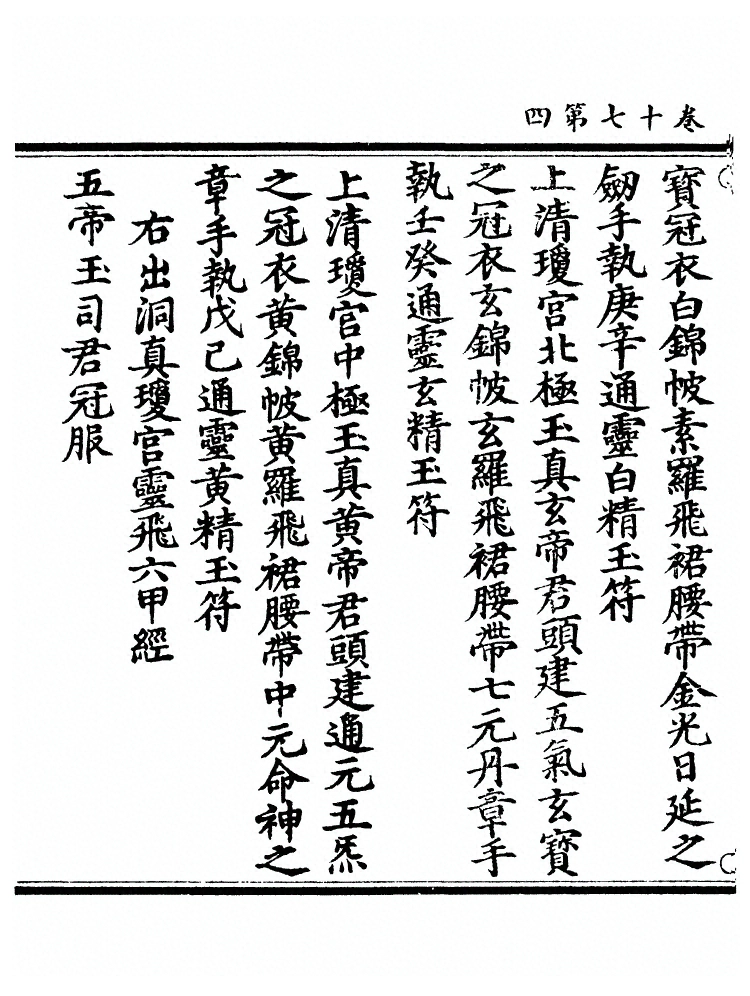 卷十七第四
寶冠衣白錦帔素羅飛裙腰帶金光日延之
劒手執庚辛通靈白精玉符
上清瓊宮北極玉真玄帝君頭建五氣玄寶
之冠衣玄錦帔玄羅飛裙腰帶七元丹章手
執壬癸通靈玄精玉符
上清瓊宮中極玉真黃帝君頭建通元五炁
之冠衣黃錦帔黃羅飛裙腰帶中元命神之
章手執戊己通靈黃精玉符
右出洞真瓊宮靈飛六甲經
五帝玉司君冠服